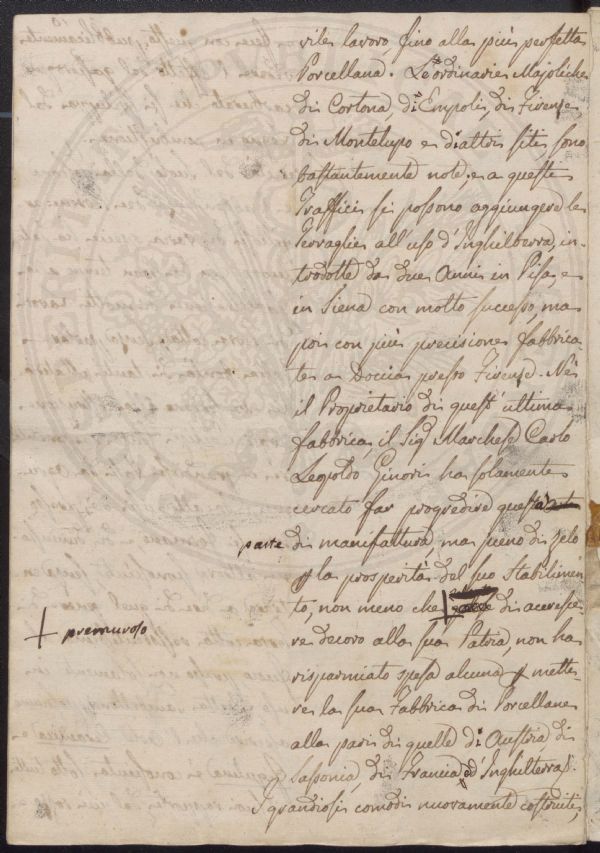 rile lavoro, fino alla più perfetta
Porcellana. Le ordinarie Majoliche
di Cortona, di Empoli, di Firenze
di Montelupo e di altri siti, sono
bastantemente note, e a queste
Traffici si possono aggiungere le
Terraglie all'uso d'Inghilterra, in-
trodotte da due Anni in Pisa, e
in Siena con molto successo, ma
poi con più precisione fabbrica-
te a Doccia presso Firenze. Nè
il Proprietario di quest'ultima
fabbrica, il Sig. Marchese Carlo
Leopoldo Ginori ha solamente
cercato far progredire questa
parte di manifattura, ma pieno di zelo
p la prosperità del suo Stabilimen-
to, non meno che di accresce-
+ premuroso
re decoro alla sua Patria, non ha
risparmiato spesa alcuna p mette-
re la sua Fabbrica di Porcellane
alla pari di quelle di Austria di
Sassonia, di Francia ed d'Inghilterra.
I grandiosi comodi nuovamente costruiti,